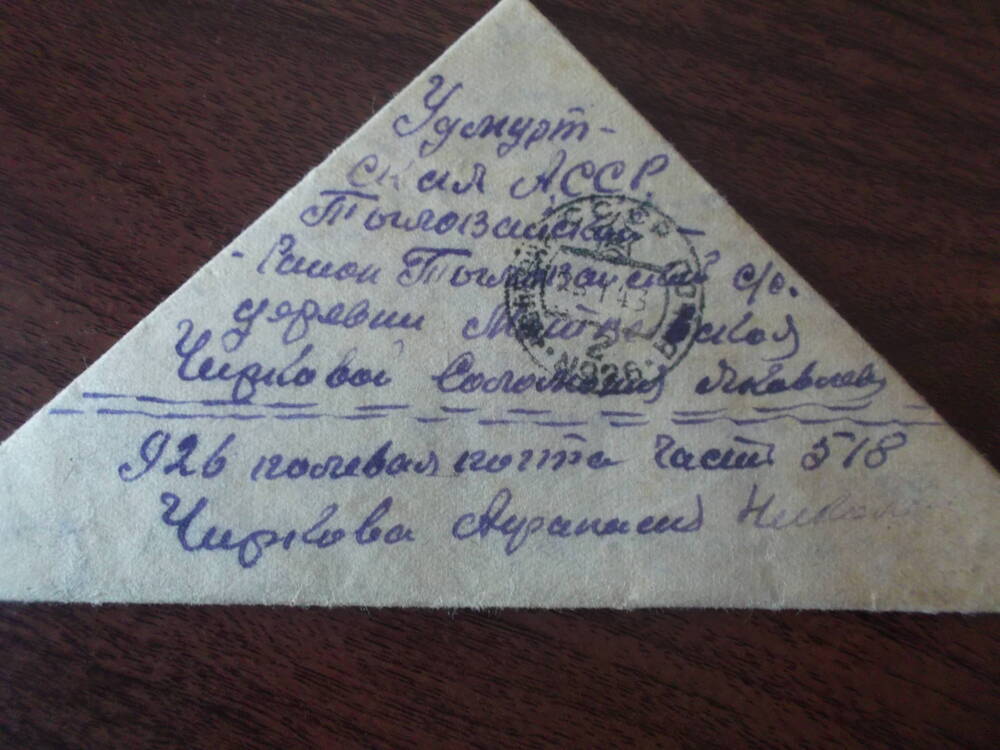 Удмурт-
ская АССР
Тыловайский -
- Раион Тыловайский с/с.
деревни
Чиркова Соломония Яковлев
926 полевая почта Част 518
Чиркова Афанасий Никола
СССР
43
2
№926